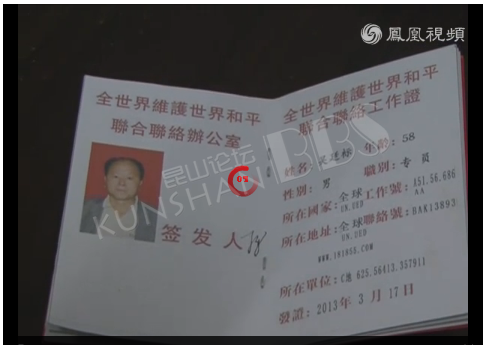 鳳凰視頻
全世界維護世界和平
聯合聯絡辦公室
签发人
全世界維護世界和平
聯合聯絡工作證
姓名: 年齡:58
性別:男 職別:专員
所在國家:全球 工作號:
所在地址:全球 聯絡號:
所在單位: 625.56413.357911
發證:2013年3月17日
昆山论坛 BBS
KUNSHAN